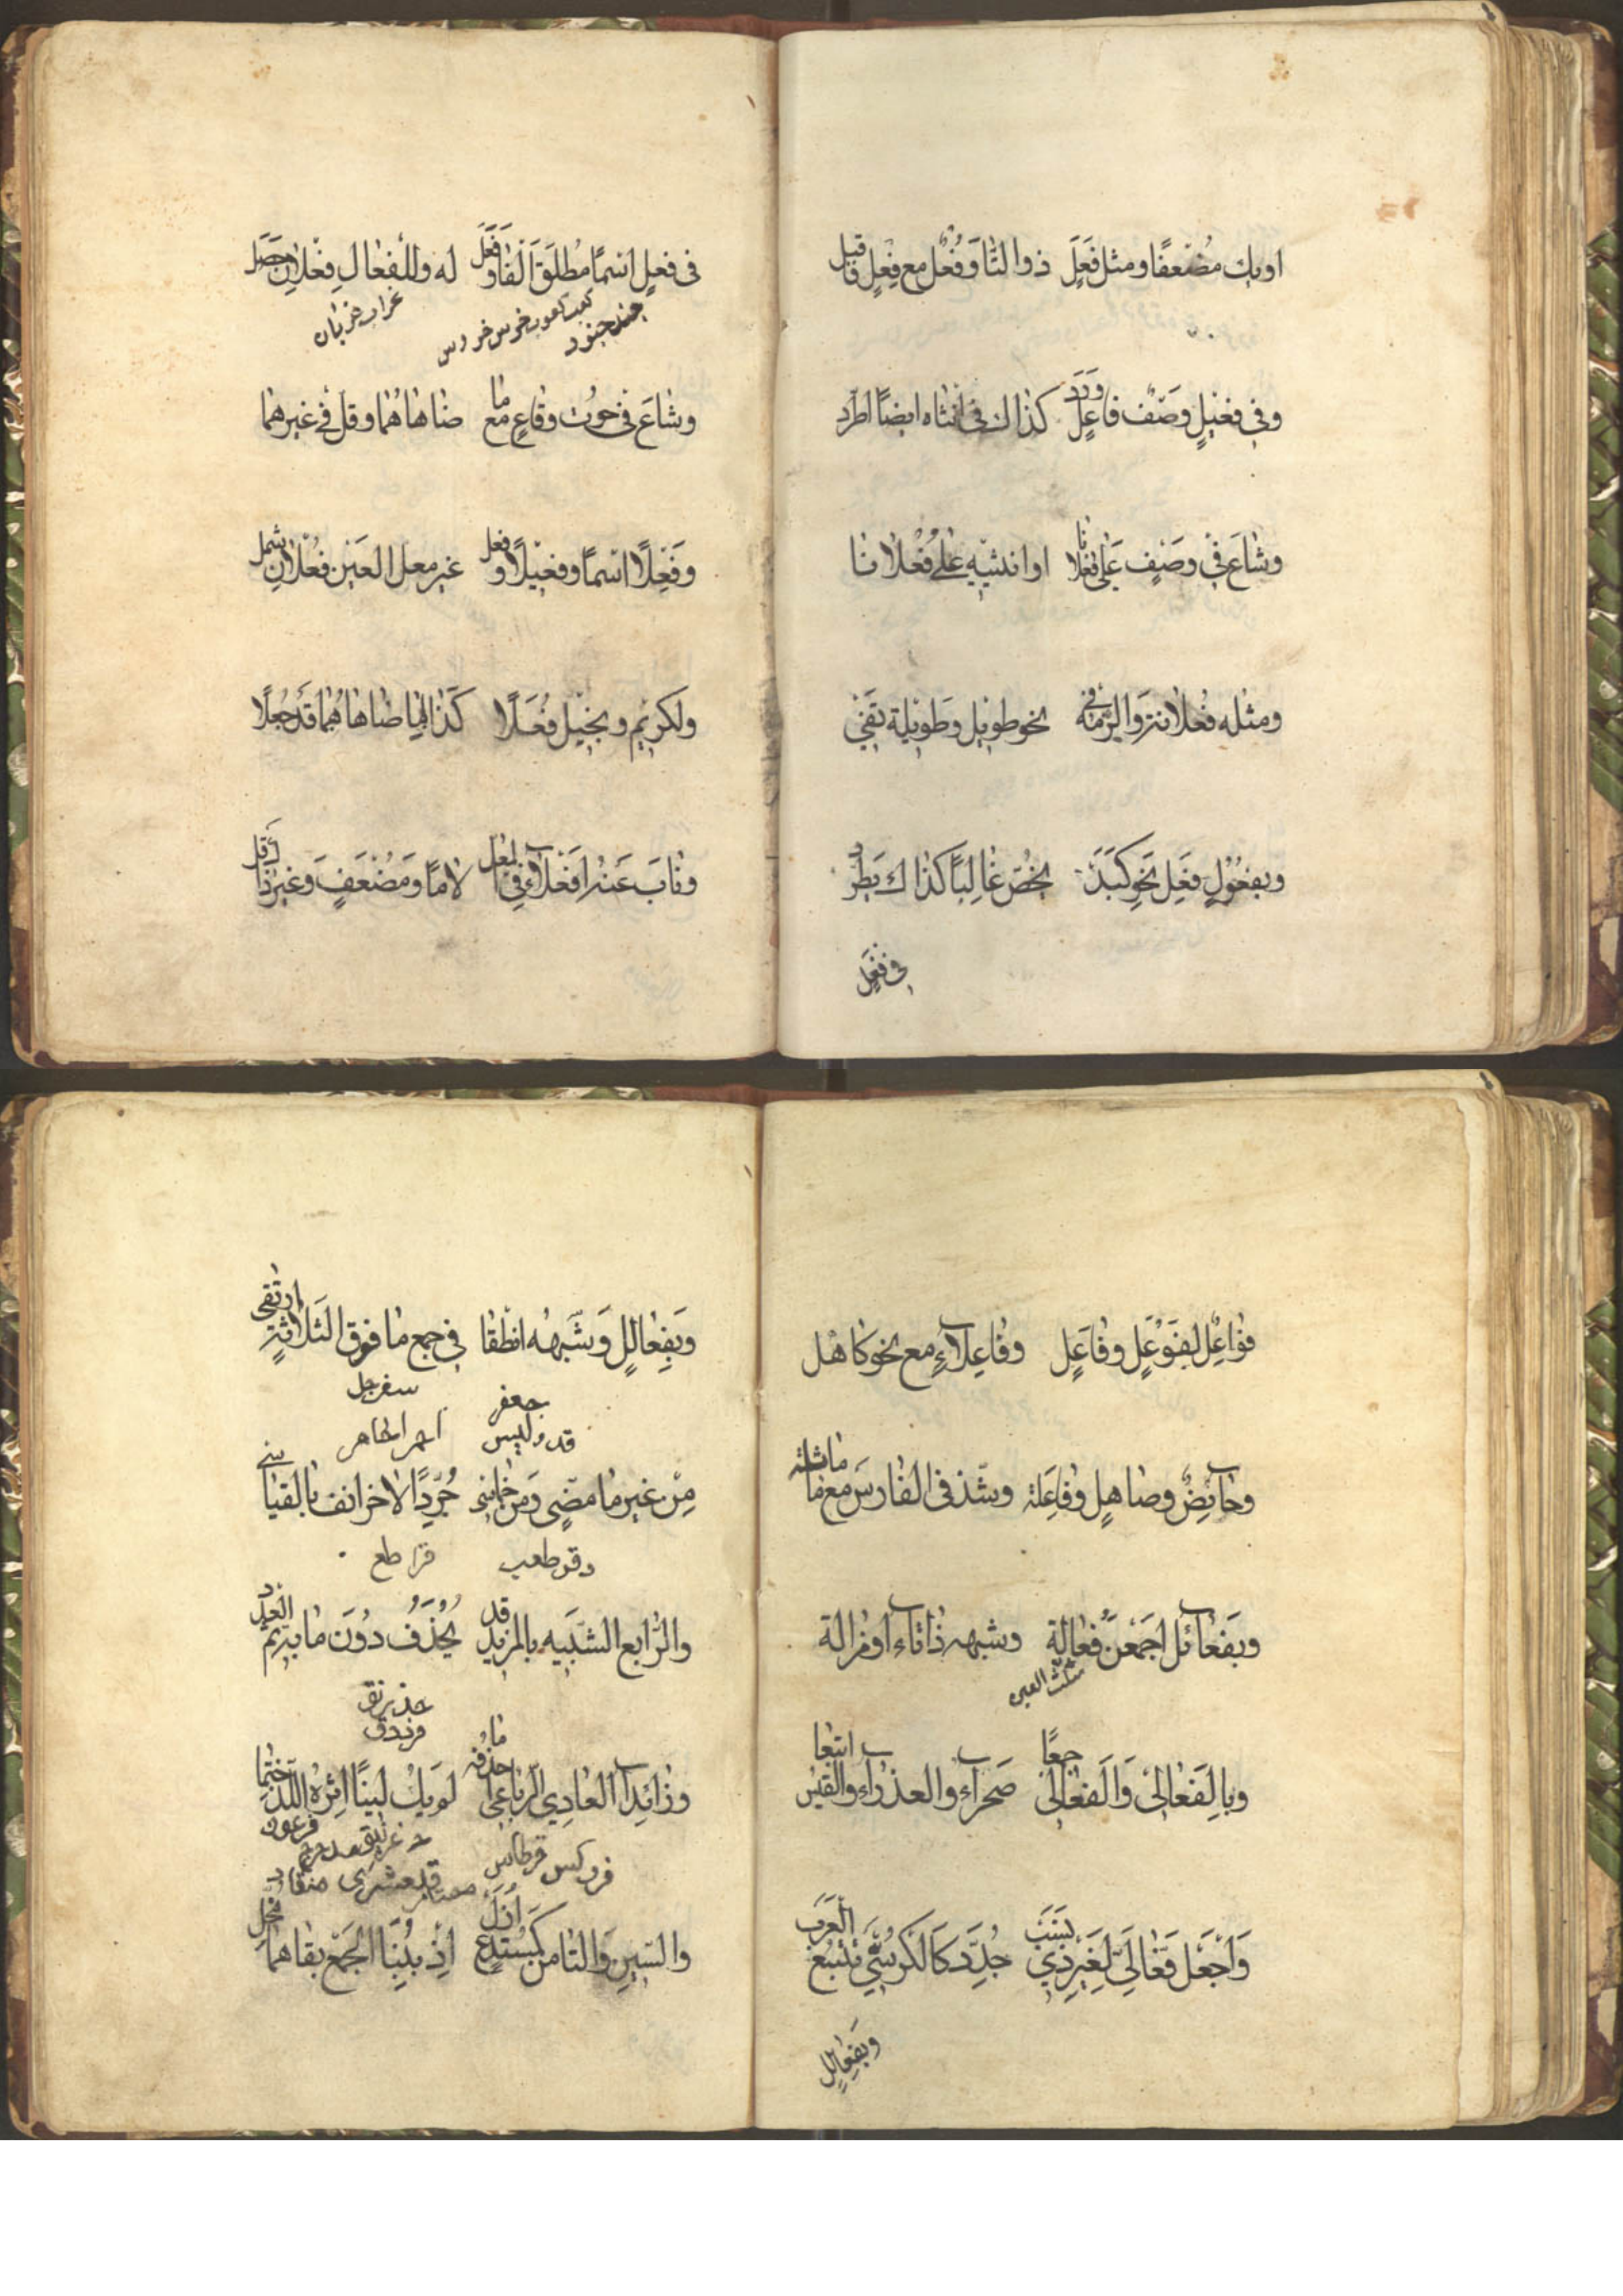 او يك مضعفا ومثل فَعَلَ ذو التا وفُعْل مع فِعْلٍ فاقبل
وفي فعيلٍ وصف فاعلٍ وَرَدَ كذاك في انثاه ايضًا اطرد
وشاع في وصفٍ على فعلانا او انثييه على فُعْلانا
ومثله فُعلانة والزمه في نحو طويل وطويلة تفي
وبفعول فَعِل نحو كبد يخص غالبًا كذاك يطرد
في فعل
في فعلٍ اسمًا مطلق الفا وفَعَل له وللفعال فِعْلان حصل
جند جنود
كعب كعوب ضرس ضروس
غراب غربان
وشاع في حوت وقاع مع ما ضاهاهما وقل في غيرهما
وفَعْلًا اسمًا وفعيلًا وفعل غير معل العين فُعْلان شمل
ولكريم وبخيل فُعَلا كذا لما ضاهاهما قد جعلا
وناب عنه افعلاء في المعل لامًا ومضعفٍ وغير ذاك قل
فواعل لفوعل وفاعل وفاعلاء مع نحو كاهل
وحائض وصاهل وفاعلة وشذ في الفارس مع ما ماثله
وبفعائل اجمعن فعالة وشبهه ذا تاء او مزالة
مثلث العين
وبالفعالي والفعالى جمعًا صحراء والعذراء والقيس اتبعا
واجعل فعالي لغير ذي نسب جدد كالكرسي تتبع العرب
وبفعالل
وبفعالل وشبهه انطقا في جمع ما فوق الثلاثة ارتقى
جعفر
سفرجل
من غير ما مضى ومن خماسي جرد الاخر انف بالقياس
والرابع الشبيه بالمزيد قد يحذف دون ما به تم العدد
وزائد العادي الرباعي احذفه ما لم يك لينًا اثره اللذ ختما
والسين والتا من كمستدع ازل اذ ببنا الجمع بقاهما مخل